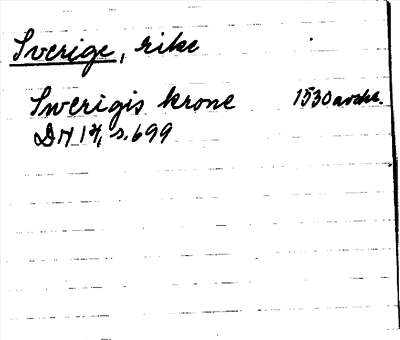 Sverige, rike
Swerigis krone 1530 avskr.
DN 14, s. 699